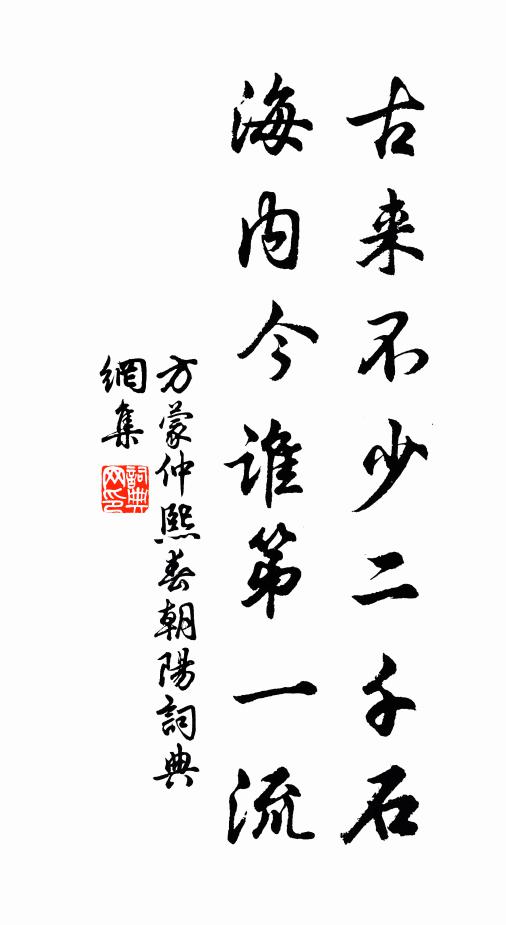 古来不少二千石
海内今谁第一流
方蒙仲熙春朝陽詞典
網集
詞典
网印